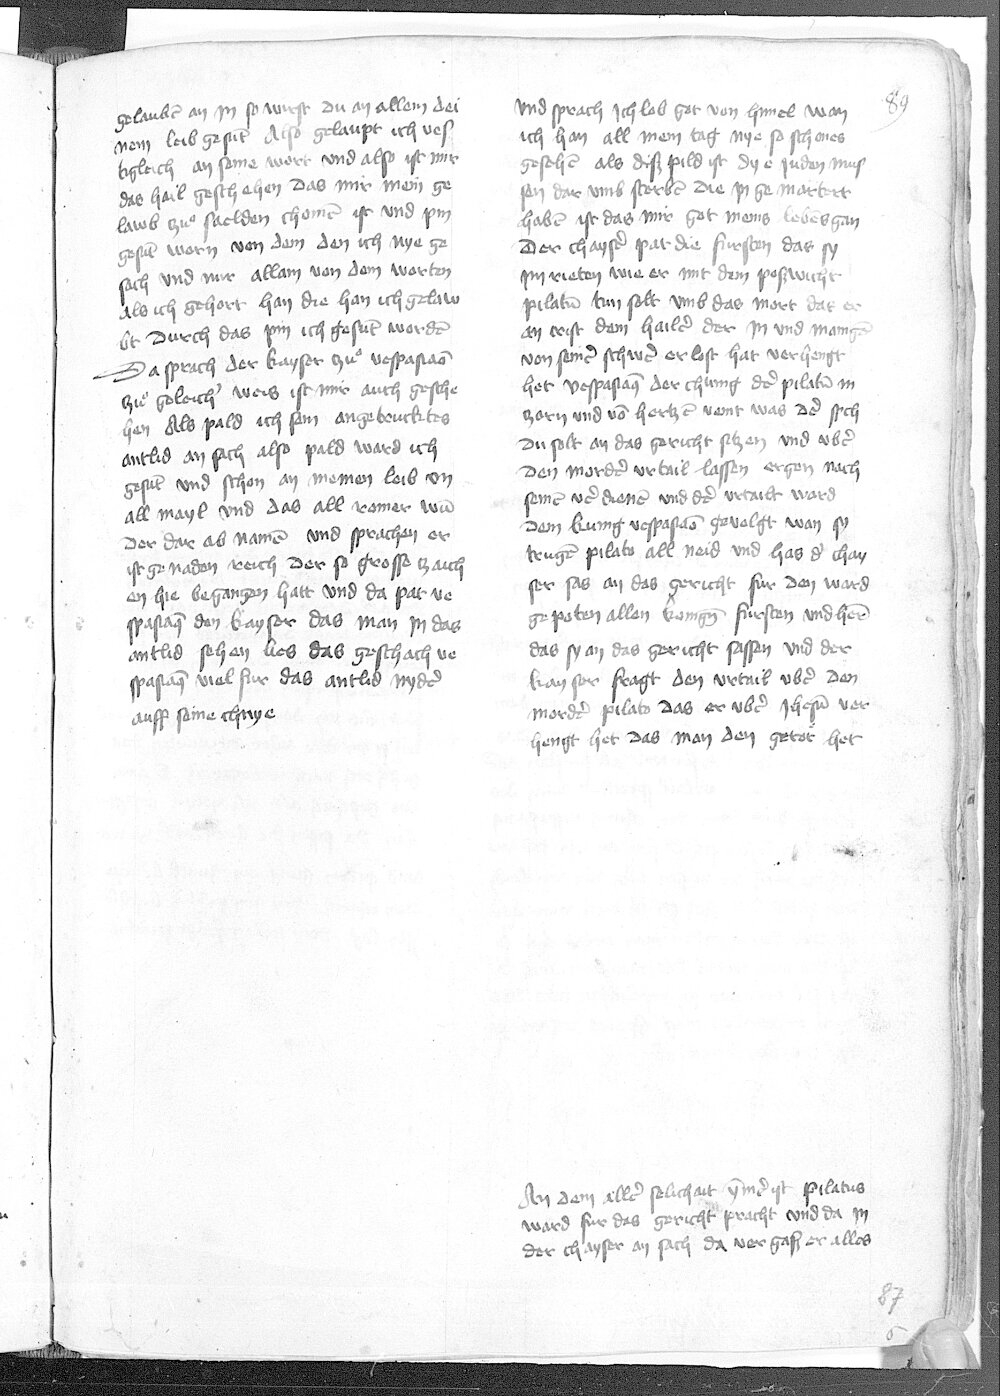 gelaubē an In so wirst du an allem dei
nem leib gesūt Also gelaupt ich ves
tigleich an seine wort vnd also ist mir
das hail geschehen Das mir mein ge
lawb zuͦ saelden chomē ist vnd pin
gesūt worn von dem den ich nye ge
sach vnd nur allain von dem worten
als ich gehort han die han ich gelaw
bt Durch das pin ich gesūt wordē
Da sprach der kayser zuͦ vespasiaō
zuͦ geleich weis ist mir auch gesche
hen Als pald ich sein angedrucktes
antlid an sach also pald ward ich
gesūt vnd schon an meinen leib vn
all mayl vnd das all romer wū
der dar ab namē vnd sprachen er
ist genaden reich Der so grosse zaich
en hie begangen hatt vnd da pat ve
spasiaꝰ den kayser das man In das
antlid sehen lies das geschach ve
spasiaꝰ viel fur das antlid nydē
auff seine chnye
89
vnd sprach Ich lob got von himel wan
ich han all mein tag nye so schones
gesehē als diß pild ist dye Juden mus
sen dar vmb sterbē Die In gemartert
habē ist das mir got meins lebes gan
Der chaysē pat die fursten das sy
Im rieten wie er mit dem poßwicht
pilatū tun solt vmb das mort dat er
an crist dem hailē der In vnd maingē
von seinē schwē erlost hat verhengt
het vespasiaꝰ der chunig dē pilatū in
zorn vnd vō hertzē veint was dē sprch
Du solt an das gericht sitzen vnd vbē
Den mordē vrtail lassen ergen nach
seinē vē dienē vnd dē vrtailt ward
Dem kunig vespasiaō gevolgt wan sy
trugē pilato all neid vnd has dē chay
ser sas an das gericht fur den ward
gepoten allen konigē fursten vnd herē
das sy an das gericht sassen vnd der
kayser fragt den vrtail vbē den
mordē pilato das er vbē Jhesū ver
hengt het das man den getot het
An dem allē selichait ymē ist pilatus
ward fur das gericht pracht vnd da In
der chayser an sach da vergaß er alles
87